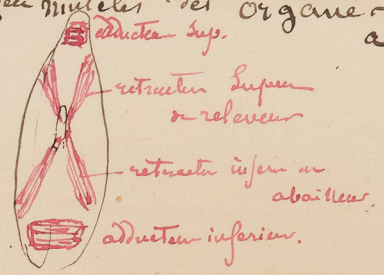 muscles des organe-
a
adducteur sup.
retracteur Superieur
ou releveur
retracteur inferieur ou
abaisseur.
adducteur inferieur.